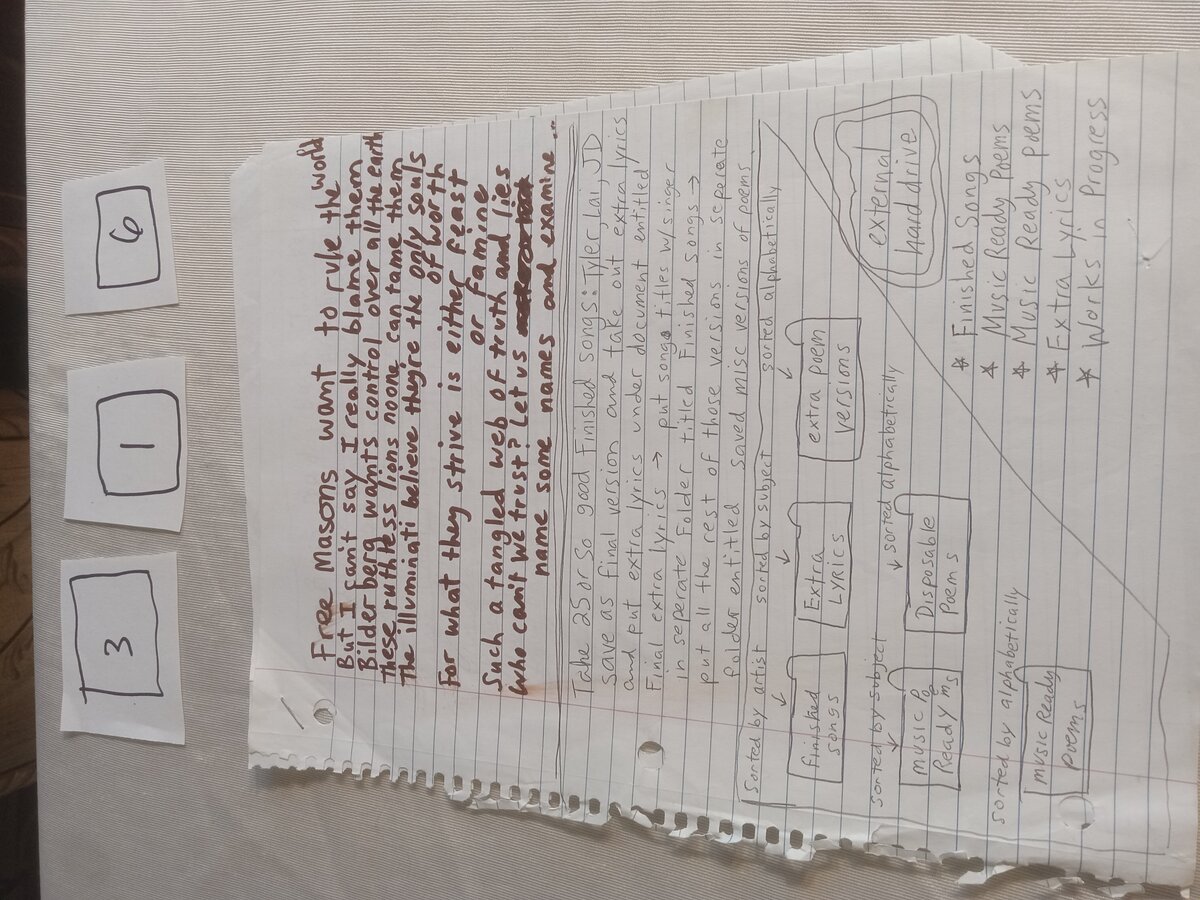 3
1
6
Free Masons want to rule the world
But I can't say I really blame them
Bilderberg wants control over all the earth
These ruthless lions noone can tame them
The illuminati believe they're the only souls
of worth
For what they strive is either feast
or famine
Such a tangled web of truth and lies
Who can't we trust? Let us
name some names and examine...
Take 25 or so good Finished songs: Tyler, Lai, JD
save as final version and take out extra lyrics
and put extra lyrics under document entitled
Final extra lyrics → put songs titles w/ singer
in seperate Folder titled Finished songs →
put all the rest of those versions in seperate
Folder entitled saved misc versions of poems
Sorted by artist sorted by subject sorted alphabetically
Finished
songs
Extra
Lyrics
extra poem
versions
external
hard drive
sorted by subject
sorted alphabetically
music Po
Ready ems
Disposable
Poems
sorted by alphabetically
music Ready
poems
* Finished Songs
* Music Ready Poems
* Music Ready poems
* Extra Lyrics
* Works in Progress